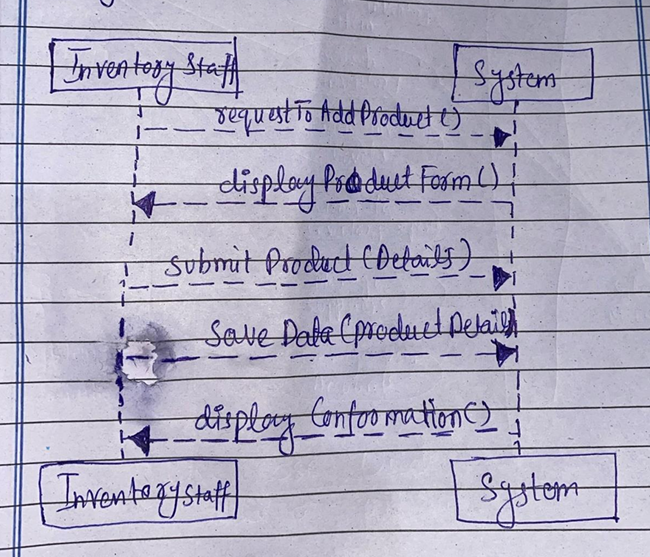 Inventory Staff
System
requestToAddProduct()
displayProductForm()
Submit Product (Details)
Save Data (product Details)
display Conformation()
Inventory Staff
System